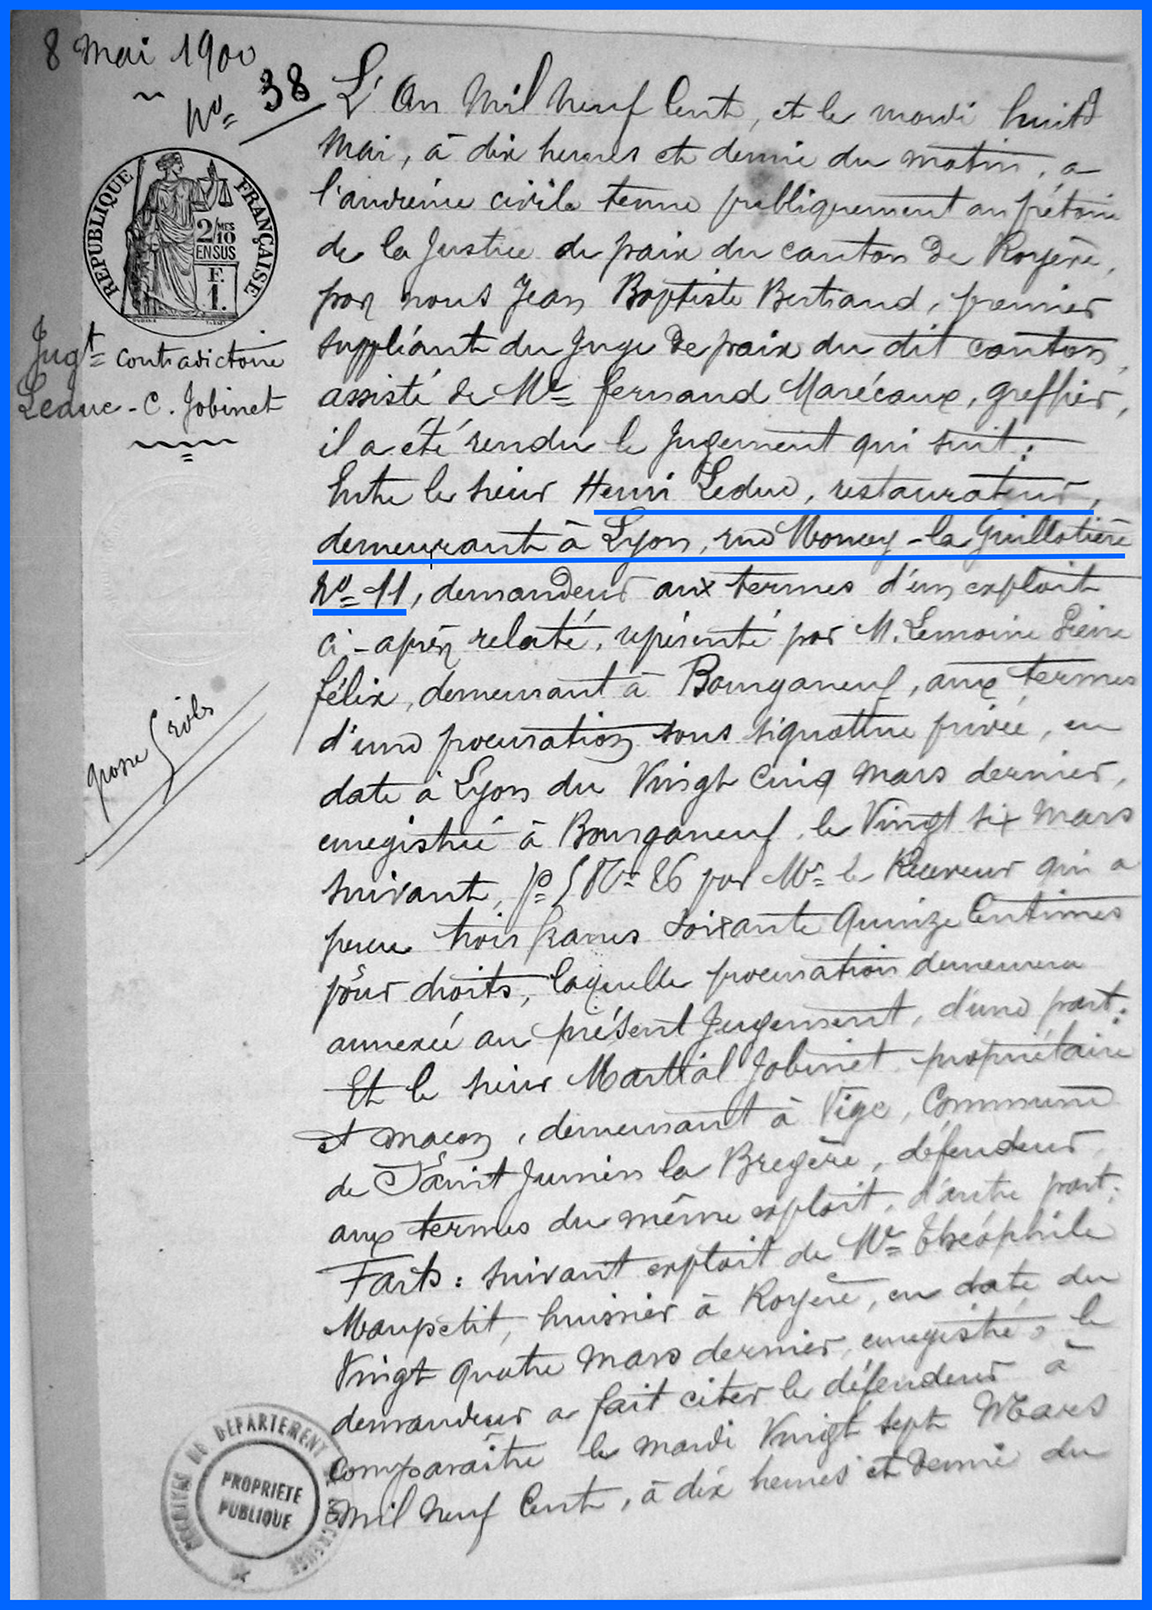 8 Mai 1900
N° 38
RÉPUBLIQUE FRANÇAISE
2/10 MES
EN SUS
F.
1.
Jugt contradictoire
Leduc - C. Jobinet
grosse
L'An Mil Neuf Cent, et le mardi huit
Mai, à dix heures et demie du matin, a
l'audience civile tenue publiquement au prétoire
de la Justice de paix du canton de Royère,
par nous Jean Baptiste Bertrand, premier
suppléant du Juge de paix du dit canton,
assisté de Me Fernand Marécaux, greffier,
il a été rendu le Jugement qui suit :
Entre le sieur Henri Leduc, restaurateur,
demeurant à Lyon, rue Moncey - la Guillotière
N° 11, demandeur aux termes d'un exploit
ci-après relaté, représenté par M. Lemoine Pierre
Félix, demeurant à Bourganeuf, aux termes
d'une procuration sous signature privée, en
date à Lyon du Vingt Cinq Mars dernier,
enregistrée à Bourganeuf, le Vingt six Mars
suivant, par Mr le Receveur qui a
perçu trois francs soixante Quinze Centimes
pour droits, laquelle procuration demeurera
annexée au présent Jugement, d'une part :
Et le sieur Martial Jobinet propriétaire
et maçon, demeurant à Vige, Commune
de Saint Junien la Bregère, défendeur
aux termes du même exploit, d'autre part ;
Faits : suivant exploit de Me Théophile
Maupetit, huissier à Royère, en date du
Vingt quatre Mars dernier, enregistré, le
demandeur a fait citer le défendeur à
Comparaître le mardi Vingt sept Mars
Mil Neuf Cent, à dix heures et demie du
ARCHIVES DU DÉPARTEMENT DE LA CREUSE
PROPRIÉTÉ
PUBLIQUE